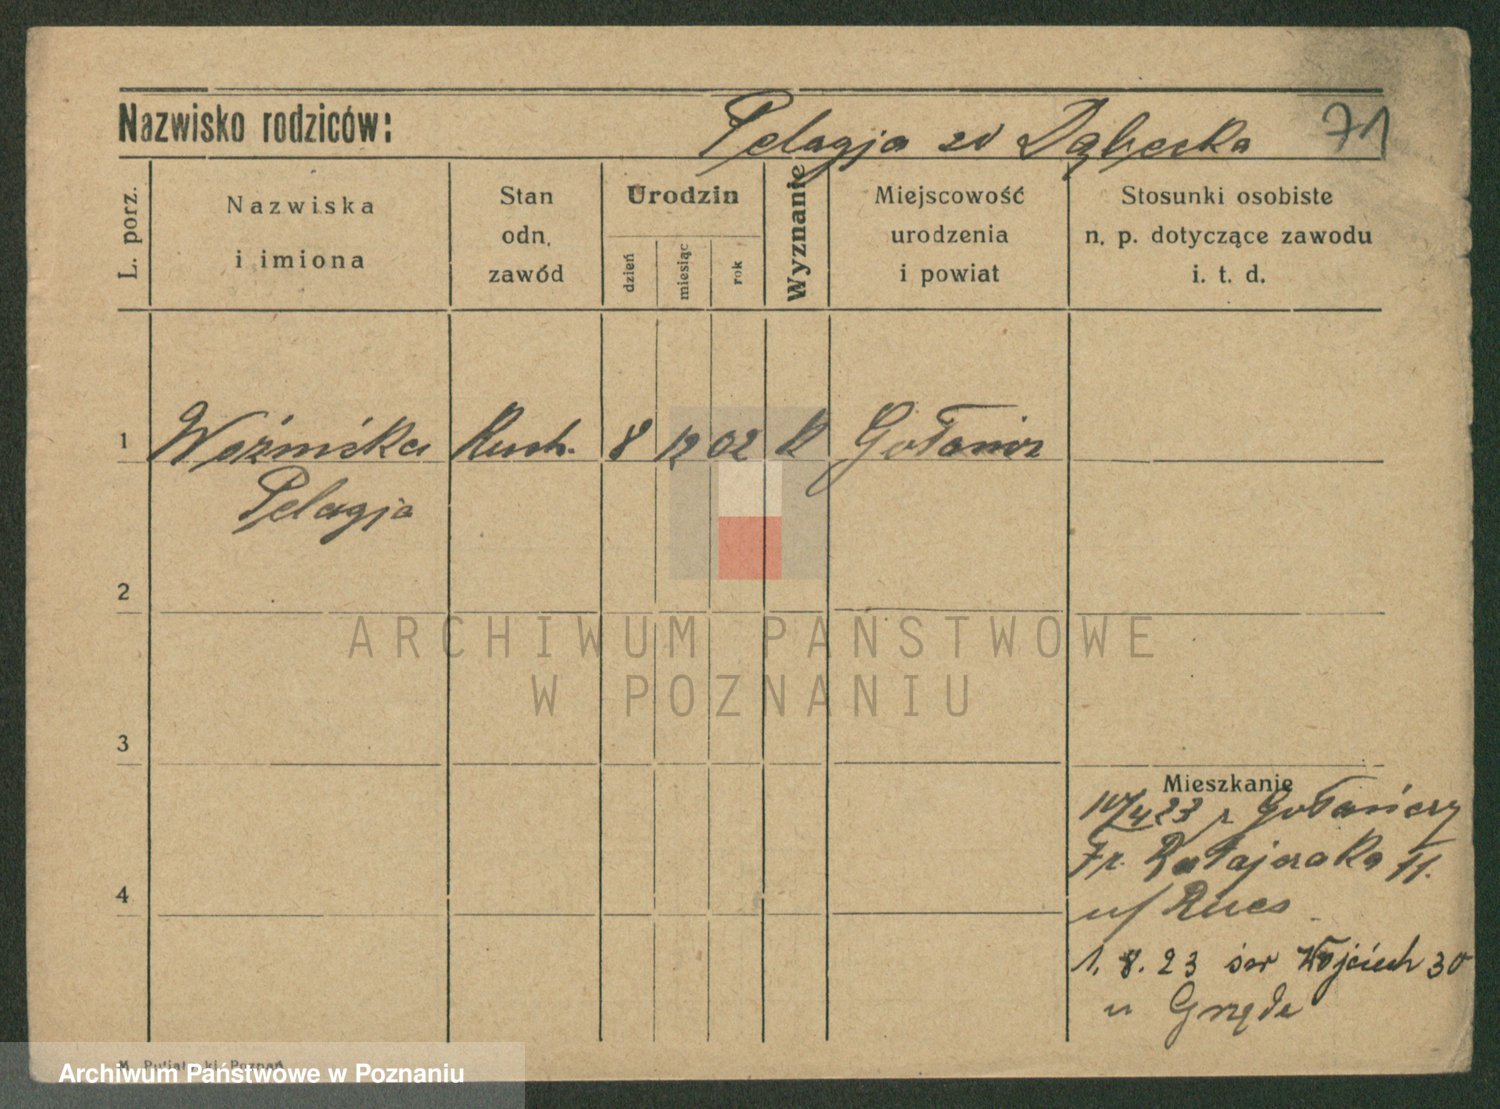 Nazwisko rodziców: Pelagja zd Dąbecka 71
L. porz.
Nazwiska
i imiona
Stan
odn.
zawód
Urodzin
dzień
miesiąc
rok
Wyznanie
Miejscowość
urodzenia
i powiat
Stosunki osobiste
n. p. dotyczące zawodu
i. t. d.
1 Woźnicka Kuch. 8 12 02 K Gołańcz
Pelagja
2
3
4
Mieszkanie
10/4 23 z Gołańczy
Fr. Ratajczaka 11.
u/ Rues
1. 8. 23 św Wojciech 30
u Grzęda
ARCHIWUM PAŃSTWOWE
W POZNANIU
Archiwum Państwowe w Poznaniu